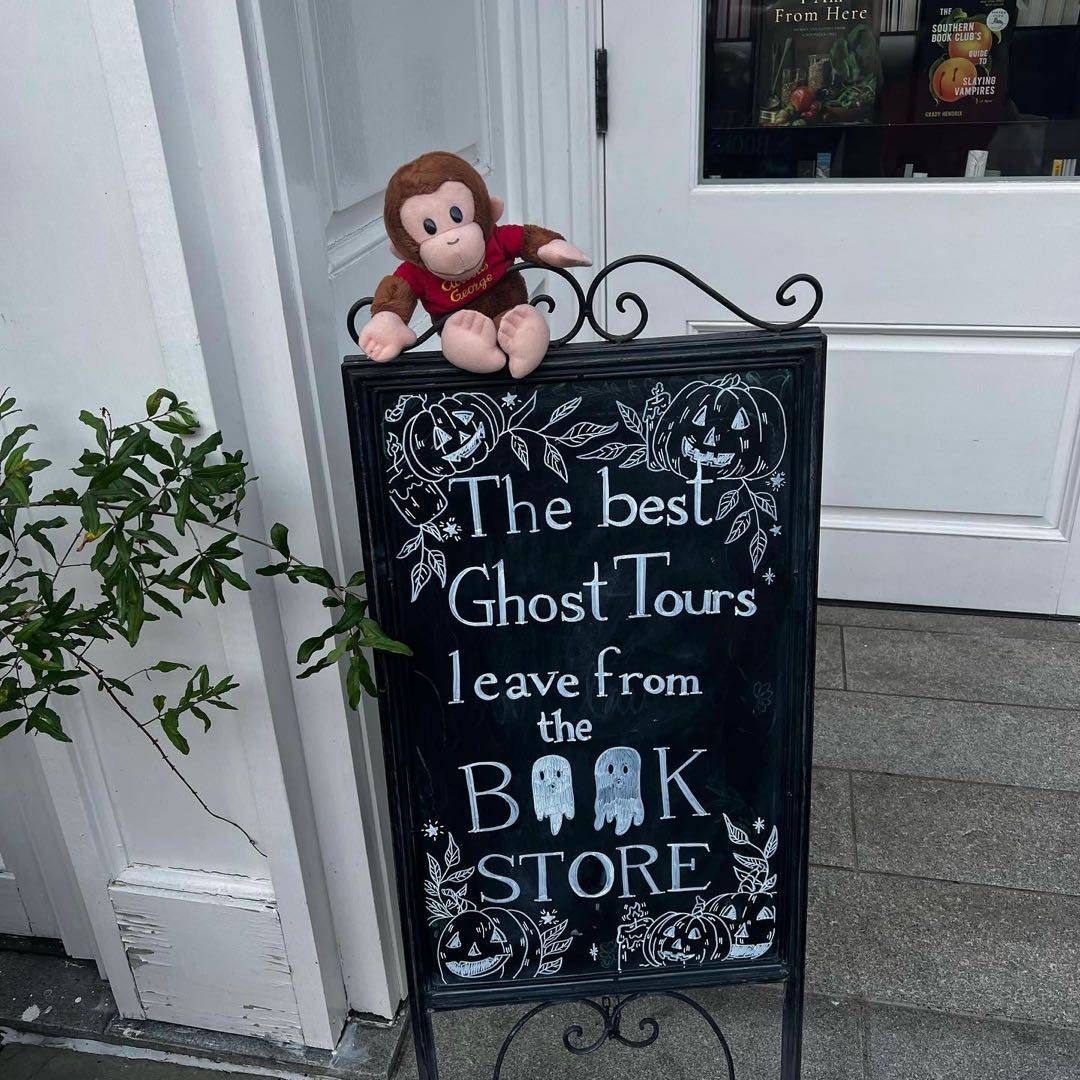 From Here
THE
SOUTHERN
BOOK CLUB'S
GUIDE
TO
SLAYING
VAMPIRES
GRADY HENDRIX
Curious
George
The best
Ghost Tours
leave from
the
BOOK
STORE